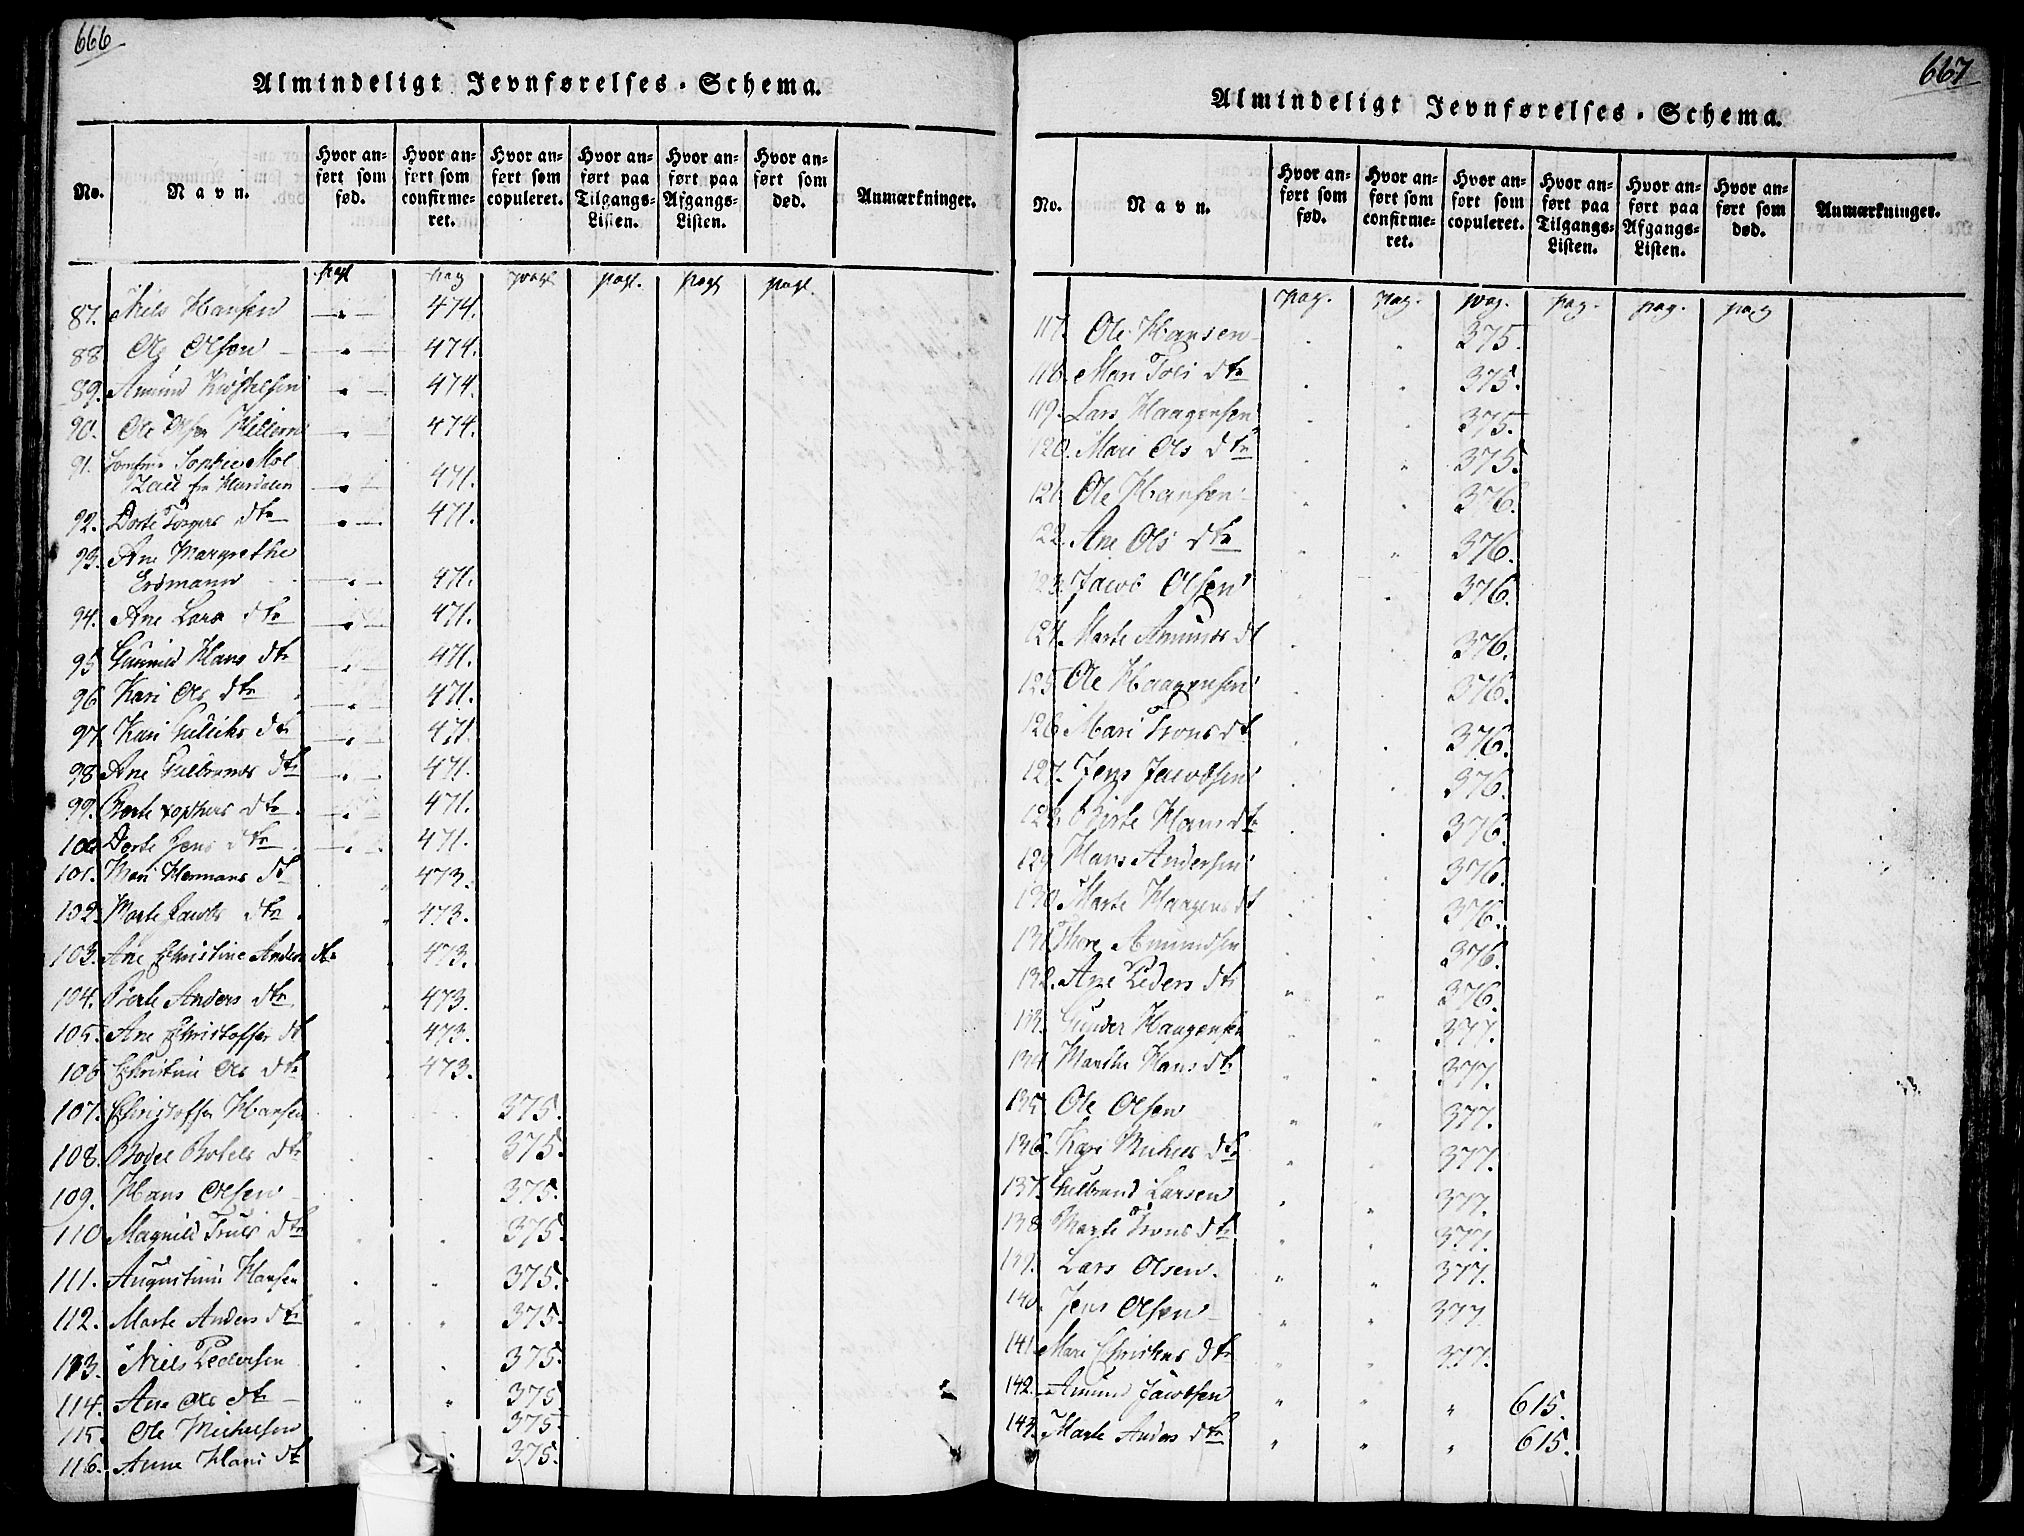 666
Almindeligt Jevnførelses-Schema.
No.
Navn.
Hvor anført som fød.
Hvor anført som confirmeret.
Hvor anført som copuleret.
Hvor anført paa Tilgangs-Listen.
Hvor anført paa Afgangs-Listen.
Hvor anført som død.
Anmærkninger.
pag pag pag pag. pag pag.
87. Niels Hansen 474.
88 Ole Olsen 474.
89. Amund 474.
90. Ole Olsen 474.
91. Sophie
471.
92. Dorte Torgers dtr 471.
93. Ane Margrethe
Erdmann 471.
94. Ane Lars dtr 471.
95 Gunild Hans dtr 471.
96 Kari Ols dtr 471.
97. Kari Gulichs dtr 471.
98. Ane Gulbrands dtr 471.
99. Berte dtr 471.
100 Dorte Jens dtr 471.
101. Mari Hermans dt 473.
102. Marte Jacobs dtr 473.
103. Ane Christine Anders dtr 473.
104. Berte Anders dtr 473.
105. Ane Christoffer dt 473.
106 Christine Ols dtr 473.
107. Christoffer Hansen 375.
108. Bodel dtr 375.
109. Hans Olsen 375.
110 Magnild Truls dtr 375.
111. Augustinus Hansen 375.
112. Marte Anders dtr 375.
113. Niels Pedersen 375.
114. Ane Ols dtr 375
115. Ole Michelsen 375.
116. Anne Hans dt 375.
667
Almindeligt Jevnførelses-Schema.
No.
Navn.
Hvor anført som fød.
Hvor anført som confirmeret.
Hvor anført som copuleret.
Hvor anført paa Tilgangs-Listen.
Hvor anført paa Afgangs-Listen.
Hvor anført som død.
Anmærkninger.
pag. pag. pag. pag. pag. pag
117. Ole Hansen 375.
118. Mari dtr 375.
119. Lars Haagensen 375.
120. Mari Ols dtr 375.
121. Ole Hansen 376.
122. Ane Ols dtr 376.
123. Jacob Olsen 376.
124. Marte Amunds dt 376.
125. Ole Haagensen 376.
126. Mari Trons dt 376.
127. Jens Jacobsen 376.
128. Birte Hans dtr 376.
129. Hans Andersen 376.
130. Marte Haagens dt 376.
131 Thore Amundsen 376.
132. Ane Peders dtr 376.
133. Gunder Haagensen 377.
134. Marthe Hans dtr 377.
135. Ole Olsen 377.
136. Kari Michels dtr 377.
137. Gulbrand Larsen 377.
138. Marte Trons dtr 377.
139. Lars Olsen. 377.
140. Jens Olsen 377
141. Mari dtr 377.
142. Amund Jacobsen 615.
143. Marte Anders dtr 615.